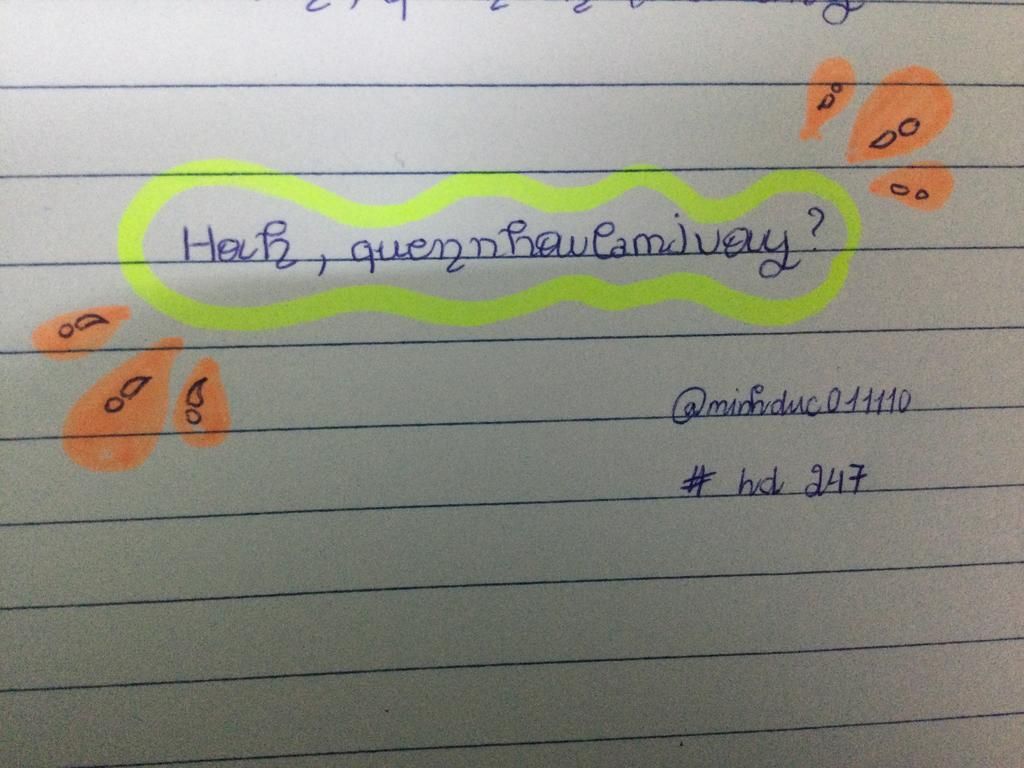 Hah, quen nhau lam j vay?
@minhduc011110
# hd 247